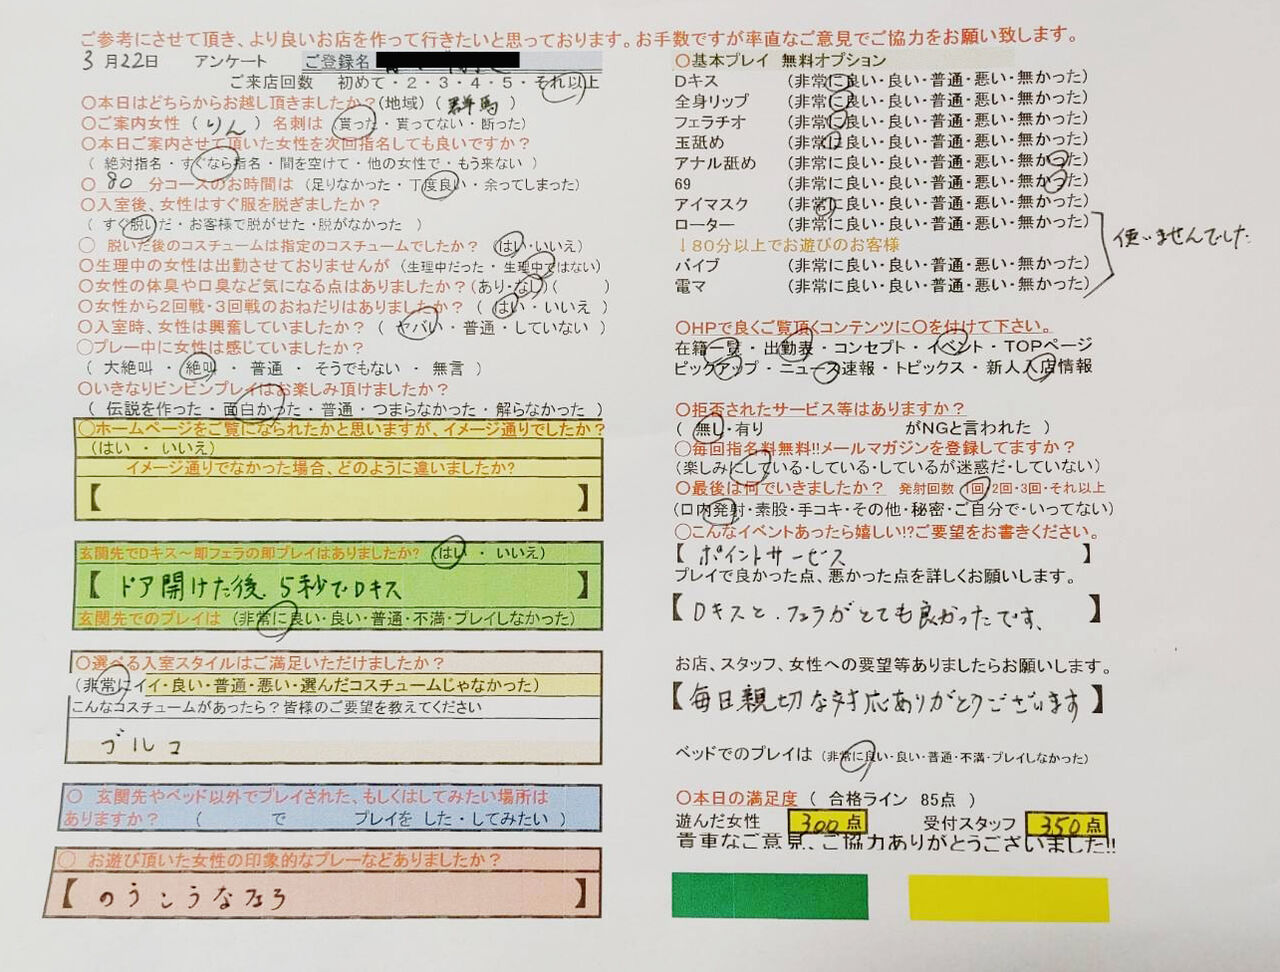 ご参考にさせて頂き、より良いお店を作って行きたいと思っております。お手数ですが率直なご意見でご協力をお願い致します。
3月22日 アンケート ご登録名
ご来店回数 初めて・2・3・4・5・それ以上
〇本日はどちらからお越し頂きましたか?(地域)( 群馬 )
〇ご案内女性 ( りん ) 名刺は (貰った・貰ってない・断った)
〇本日ご案内させて頂いた女性を次回指名しても良いですか?
( 絶対指名・すぐなら指名・間を空けて・他の女性で・もう来ない )
〇 80 分コースのお時間は (足りなかった・丁度良い・余ってしまった)
〇入室後、女性はすぐ服を脱ぎましたか?
( すぐ脱いだ・お客様で脱がせた・脱がなかった )
〇 脱いだ後のコスチュームは指定のコスチュームでしたか? (はい・いいえ)
〇生理中の女性は出勤させておりませんが (生理中だった・生理中ではない)
〇女性の体臭や口臭など気になる点はありましたか?(あり・なし)( )
〇女性から2回戦・3回戦のおねだりはありましたか? ( はい・いいえ )
〇入室時、女性は興奮していましたか? ( ヤバい・普通・していない )
〇プレー中に女性は感じていましたか?
( 大絶叫 ・ 絶叫 ・ 普通 ・ そうでもない ・ 無言 )
〇いきなりビンビンプレイはお楽しみ頂けましたか?
( 伝説を作った・面白かった・普通・つまらなかった・解らなかった )
〇ホームページをご覧になられたかと思いますが、イメージ通りでしたか?
(はい ・ いいえ)
イメージ通りでなかった場合、どのように違いましたか?
【 】
玄関先でDキス～即フェラの即プレイはありましたか? (はい ・ いいえ)
【 ドア開けた後、5秒でDキス 】
玄関先でのプレイは (非常に良い・良い・普通・不満・プレイしなかった)
〇選べる入室スタイルはご満足いただけましたか?
(非常にイイ・良い・普通・悪い・選んだコスチュームじゃなかった)
こんなコスチュームがあったら?皆様のご要望を教えてください
ブルコ
〇 玄関先やベッド以外でプレイされた、もしくはしてみたい場所は
ありますか? ( で プレイを した・してみたい )
〇 お遊び頂いた女性の印象的なプレーなどありましたか?
【 のうこうなフェラ 】
〇基本プレイ 無料オプション
Dキス (非常に良い・良い・普通・悪い・無かった)
全身リップ (非常に良い・良い・普通・悪い・無かった)
フェラチオ (非常に良い・良い・普通・悪い・無かった)
玉舐め (非常に良い・良い・普通・悪い・無かった)
アナル舐め (非常に良い・良い・普通・悪い・無かった)
69 (非常に良い・良い・普通・悪い・無かった)
アイマスク (非常に良い・良い・普通・悪い・無かった)
ローター (非常に良い・良い・普通・悪い・無かった)
使いませんでした
↓80分以上でお遊びのお客様
バイブ (非常に良い・良い・普通・悪い・無かった)
電マ (非常に良い・良い・普通・悪い・無かった)
〇HPで良くご覧頂くコンテンツに〇を付けて下さい。
在籍一覧 ・ 出勤表 ・ コンセプト ・ イベント ・ TOPページ
ピックアップ ・ ニュース速報 ・ トピックス ・ 新人入店情報
〇拒否されたサービス等はありますか?
( 無し・有り がNGと言われた )
〇毎回指名料無料!!メールマガジンを登録してますか?
(楽しみにしている・している・しているが迷惑だ・していない)
〇最後は何でいきましたか? 発射回数 1回・2回・3回・それ以上
(口内発射・素股・手コキ・その他・秘密・ご自分で・いってない)
〇こんなイベントあったら嬉しい!?ご要望をお書きください。
【 ポイントサービス 】
プレイで良かった点、悪かった点を詳しくお願いします。
【 Dキスと、フェラがとても良かったです、 】
お店、スタッフ、女性への要望等ありましたらお願いします。
【 毎日親切な対応ありがとうございます 】
ベッドでのプレイは (非常に良い・良い・普通・不満・プレイしなかった)
〇本日の満足度 ( 合格ライン 85点 )
遊んだ女性 300点 受付スタッフ 350点
貴重なご意見、ご協力ありがとうございました!!